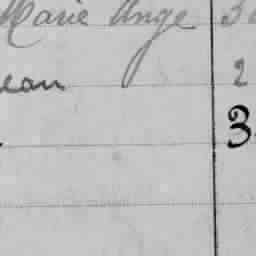 Marie Ange 3
ean 2
3